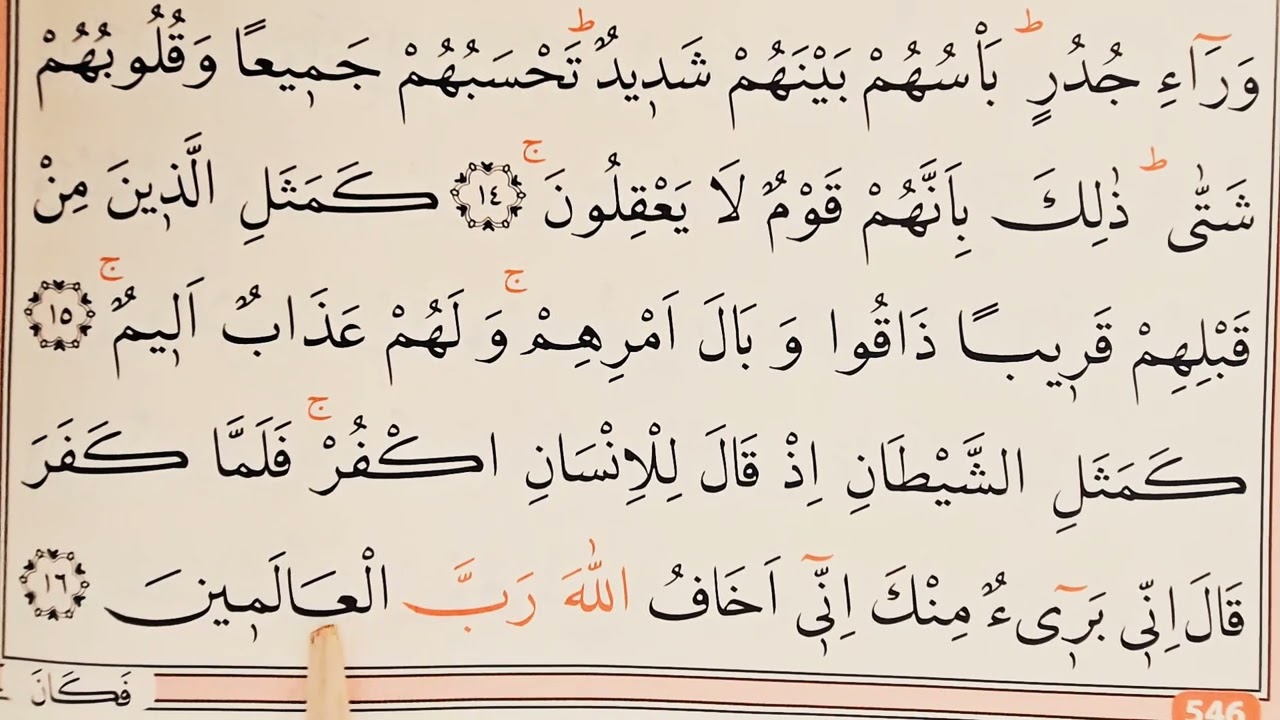 وَرَٓاءِ جُدُرٍ ؕ بَاْسُهُمْ بَيْنَهُمْ شَدٖيدٌ ؕ تَحْسَبُهُمْ جَمٖيعًا وَقُلُوبُهُمْ
شَتّٰى ؕ ذٰلِكَ بِاَنَّهُمْ قَوْمٌ لَا يَعْقِلُونَ ۚ ﴿١٤﴾ كَمَثَلِ الَّذٖينَ مِنْ
قَبْلِهِمْ قَرٖيبًا ذَاقُوا وَبَالَ اَمْرِهِمْ ۚ وَلَهُمْ عَذَابٌ اَلٖيمٌ ۚ ﴿١٥﴾
كَمَثَلِ الشَّيْطَانِ اِذْ قَالَ لِلْاِنْسَانِ اكْفُرْ ۚ فَلَمَّا كَفَرَ
قَالَ اِنّٖى بَرٖٓىءٌ مِنْكَ اِنّٖٓى اَخَافُ اللّٰهَ رَبَّ الْعَالَمٖينَ ﴿١٦﴾
فَكَانَ
546